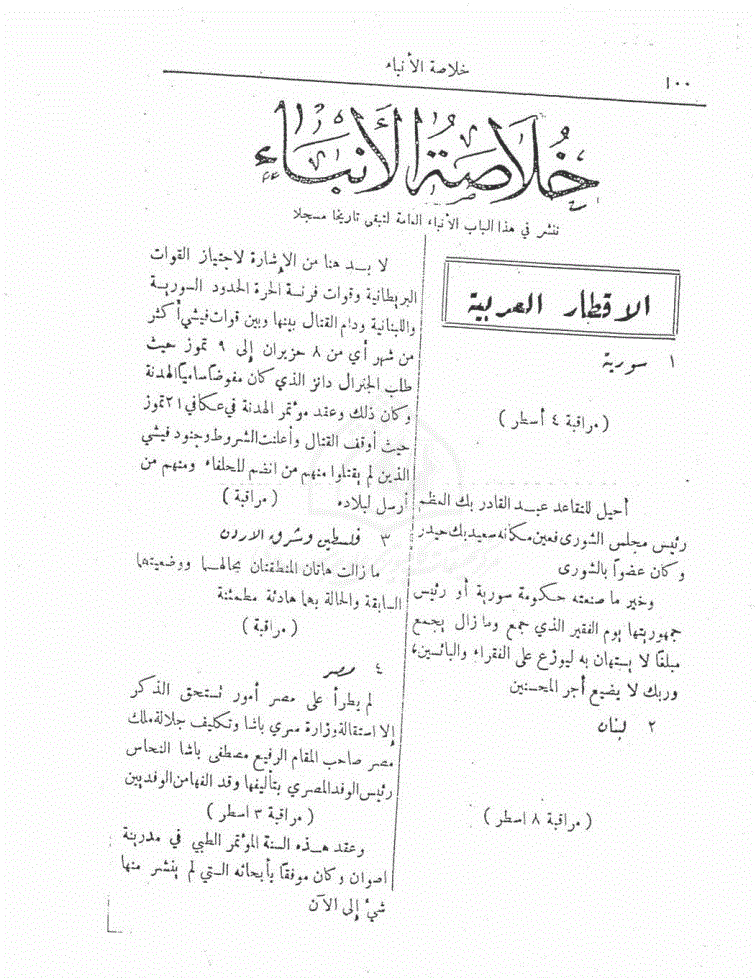 خلاصة الأنباء
١٠٠
خُلاصَةُ الأنبَاء
ننشر في هذا الباب الأنباء العامة لتبقى تاريخا مسجلا
الاقطار العربية
١ سورية
( مراقبة ٤ أسطر )
أحيل للتقاعد عبد القادر بك العظم
رئيس مجلس الشورى فعين مكانه سعيد بك حيدر
وكان عضواً بالشورى
وخير ما صنعته حكومة سورية أو رئيس
جمهوريتها يوم الفقير الذي جمع وما زال يجمع
مبلغاً لا يستهان به ليوزع على الفقراء والبائسين،
وربك لا يضيع أجر المحسنين
٢ لبنان
( مراقبة ٨ اسطر )
لا بد هنا من الإشارة لاجتياز القوات
البريطانية وقوات فرنسة الحرة الحدود السورية
واللبنانية ودام القتال بينها وبين قوات فيشي أكثر
من شهر أي من ٨ حزيران إلى ٩ تموز حيث
طلب الجنرال دانز الذي كان مفوضاً سامياً الهدنة
وكان ذلك وعقد مؤتمر الهدنة في عكا في ٢١ تموز
حيث أوقف القتال وأعلنت الشروط وجنود فيشي
الذين لم يقتلوا منهم من انضم للحلفاء ومنهم من
أرسل لبلاده ( مراقبة )
٣ فلسطين وشرق الاردن
ما زالت هاتان المنطقتان بحالهما ووضعيتهما
السابقة والحالة بهما هادئة مطمئنة
( مراقبة )
٤ مصر
لم يطرأ على مصر أمور تستحق الذكر
إلا استقالة وزارة سري باشا وتكليف جلالة ملك
مصر صاحب المقام الرفيع مصطفى باشا النحاس
رئيس الوفد المصري بتأليفها وقد الفها من الوفديين
( مراقبة ٣ اسطر )
وعقد هذه السنة المؤتمر الطبي في مدينة
اصوان وكان موفقاً بأبحاثه التي لم ينشر منها
شيء إلى الآن